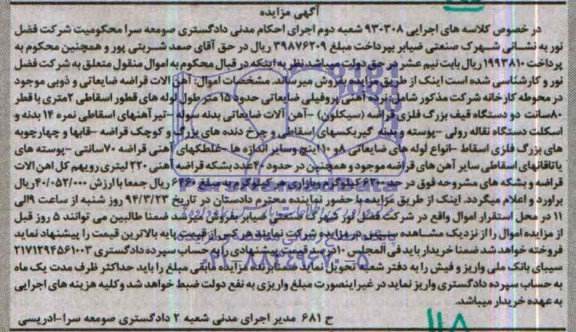 آگهی مزایده
در خصوص کلاسه های اجرایی ۹۳۰۳۰۸ شعبه دوم اجرای احکام مدنی دادگستری صومعه سرا محکومیت شرکت فضل
نور به نشانی شهرک صنعتی ضیابر بپرداخت مبلغ ۳۹۸۷۶۲۰۹ ریال در حق آقای صمد شربتی پور و همچنین محکوم به
پرداخت ۱۹۹۳۸۱۰ ریال بابت نیم عشر در حق دولت میباشد نظر به اینکه در قبال محکوم به اموال منقول متعلق به شرکت فضل
نور و کارشناسی شده است اینک از طریق مزایده بفروش میرسد. مشخصات اموال: آهن الات قراضه ضایعاتی و ذوبی موجود
در محوطه کارخانه شرکت مذکور شامل: نرده آهنی پروفیلی ضایعاتی حدود ۱۵ متر طول لوله های قطور اسقاطی ۲متری با قطر
۸۰سانت دو دستگاه قیف بزرگ فلزی قراضه (سیکلون) -آهن آلات ضایعاتی بدنه سوله -تیرآهنهای اسقاطی نمره ۱۴ بدنه و
اسکلت دستگاه نقاله رولی -پوسته و بدنه گیربکسهای اسقاطی و چرخ دنده های بزرگ و کوچک قراضه -قابها و چهارچوبه
های بزرگ فلزی اسقاط -انواع لوله های ضایعاتی ۸و۱۰ اینچ وسایر اندازه ها -غلطکهای آهنی قراضه ۷۰سانتی -پوسته های
یاتاقانهای اسقاطی سایر آهن های قراضه موجود و همچنین در حدود ۴۰عدد بشکه قراضه آهنی ۲۲۰ لیتری رویهم کل اهن الات
قراضه و بشکه های مشروحه فوق در حد ۶۲۰۰ کیلوگرم وبازاری هر کیلوگرم به مبلغ ۶۴۶۰ ریال جمعا با ارزش ۴۰/۰۵۲/۰۰۰ ریال
براورد و اعلام میگردد. اینک از طریق مزایده با حضور نماینده محترم دادستان در تاریخ ۹۴/۳/۲۳ روز شنبه از ساعت ۹الی
۱۱ در محل استقرار اموال واقع در شرکت فضل نور شهرک صنعتی ضیابر بفروش میرسد ضمنا طالبین می توانند ۵ روز قبل
از مزایده اموال را از نزدیک مشاهده سپس در مزایده شرکت نمایند هر کس از قیمت پایه بالاترین قیمت را پیشنهاد نماید
فروخته خواهد شد ضمنا خریدار باید فی المجلس ۱۰درصد قیمت پیشنهادی را به حساب سپرده دادگستری ۲۱۷۱۲۹۴۵۶۱۰۰۳
سیبای بانک ملی واریز و فیش را به دفتر شعبه تحویل نماید. ضمنا برنده مزایده مابقی مبلغ را باید حداکثر ظرف مدت یک ماه
به حساب سپرده دادگستری واریز نماید در غیر اینصورت مبلغ واریزی به نفع دولت ضبط خواهد شد و کلیه هزینه های اجرایی
به عهده خریدار میباشد.
ح ۶۸۱ مدیر اجرای مدنی شعبه ۲ دادگستری صومعه سرا-ادریسی